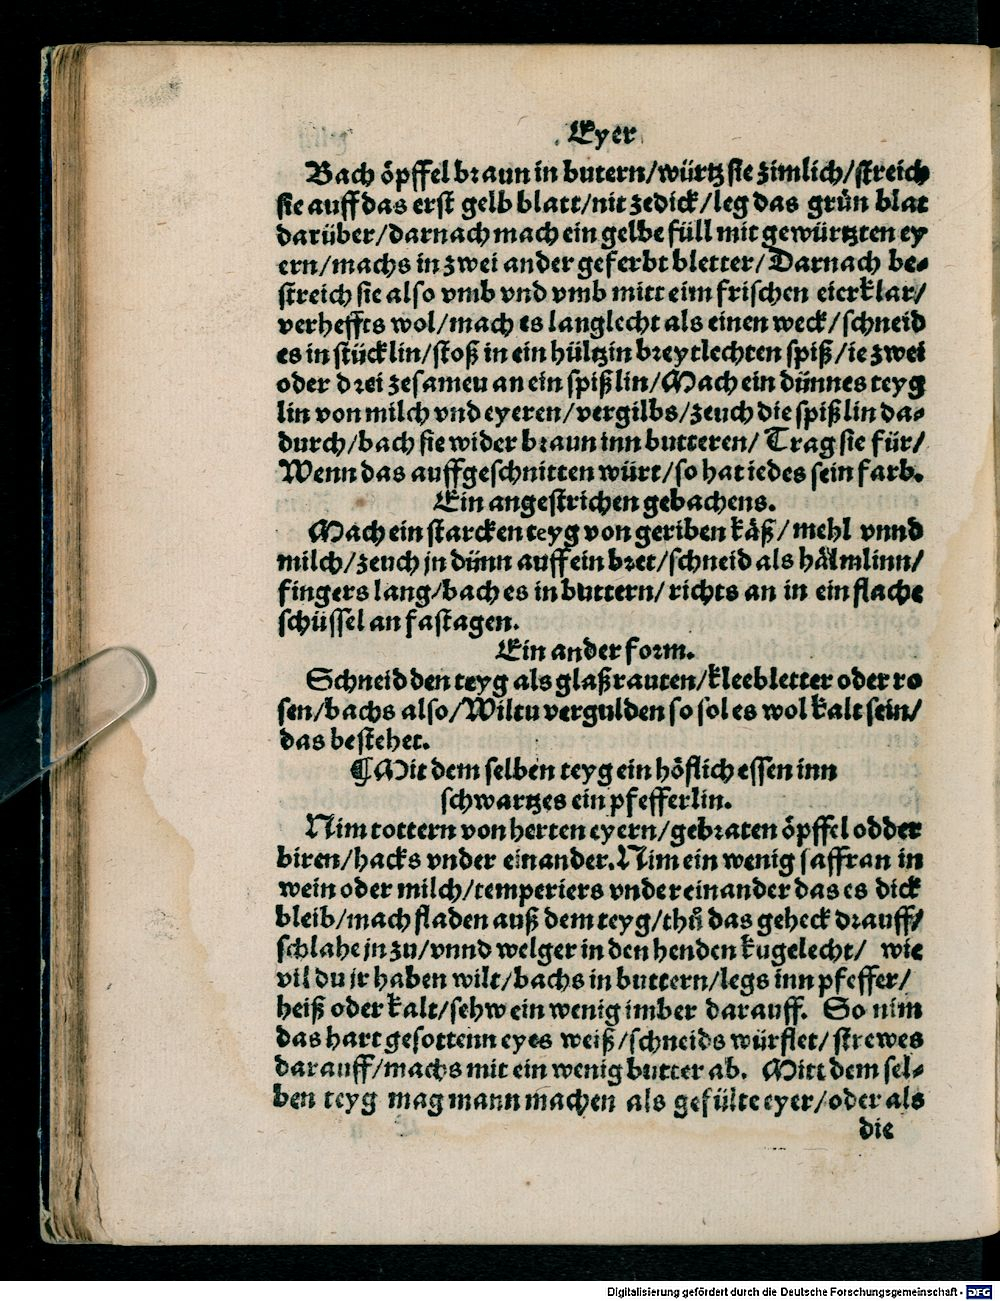 Eyer
Bach öpffel braun in butern/würtz sie zimlich/streich
sie auff das erst gelb blatt/nit zedick/leg das grün blat
darüber/darnach mach ein gelbe füll mit gewürtzten ey
ern/machs in zwei ander geferbt bletter/Darnach be⸗
streich sie also vmb vnd vmb mitt eim frischen eierklar/
verheffts wol/mach es langlecht als einen weck/schneid
es in stücklin/stoß in ein hültzin breytlechten spiß/ie zwei
oder drei zesameu an ein spißlin/Mach ein dünnes teyg
lin von milch vnd eyeren/vergilbs/zeuch die spißlin da⸗
durch/bach sie wider braun inn butteren/Trag sie für/
Wenn das auffgeschnitten würt/so hat iedes sein farb.
Ein angestrichen gebachens.
Mach ein starcken teyg von geriben käß/mehl vnnd
milch/zeuch jn dünn auff ein bret/schneid als hälmlinn/
fingers lang/bach es in buttern/richts an in ein flache
schüssel an fastagen.
Ein ander form.
Schneid den teyg als glaßrauten/kleebletter oder ro
sen/bachs also/Wiltu vergulden so sol es wol kalt sein/
das bestehet.
¶Mit dem selben teyg ein höflich essen inn
schwartzes ein pfefferlin.
Nim tottern von herten eyern/gebraten öpffel odder
biren/hacks vnder einander. Nim ein wenig saffran in
wein oder milch/temperiers vnder einander das es dick
bleib/mach fladen auß dem teyg/thů das geheck drauff/
schlahe jn zu/vnnd welger in den henden kugelecht/ wie
vil du jr haben wilt/bachs in buttern/legs inn pfeffer/
heiß oder kalt/sehw ein wenig imber darauff. So nim
das hart gesottenn eyes weiß/schneids würflet/strewes
darauff/machs mit ein wenig butter ab. Mitt dem sel⸗
ben teyg mag mann machen als gefülte eyer/oder als
die
Digitalisierung gefördert durch die Deutsche Forschungsgemeinschaft - DFG